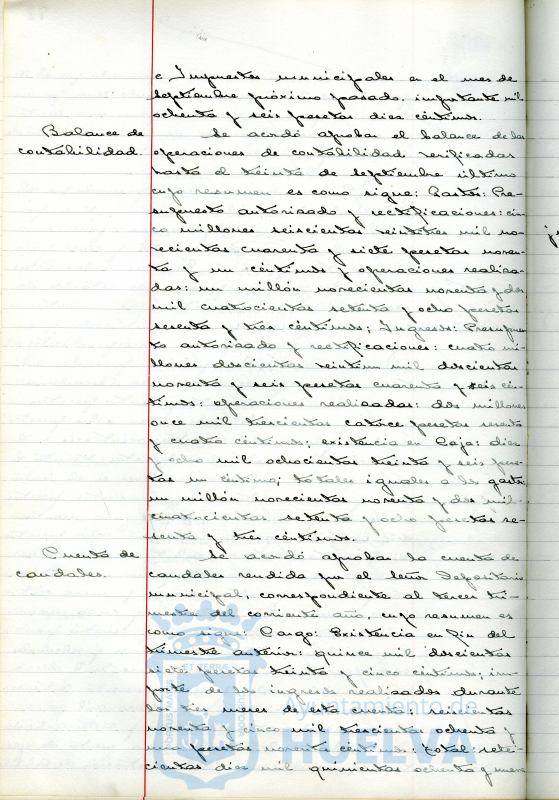 e Impuestos municipales en el mes de
septiembre próximo pasado, importante mil
ochenta y seis pesetas diez céntimos.
Balance de
contabilidad.
Se acordó aprobar el balance de las
operaciones de contabilidad verificadas
hasta el treinta de septiembre último
cuyo resumen es como sigue: Gastos: Pre-
supuesto autorizado y rectificaciones: cin-
co millones seiscientas veintitres mil no-
vecientas cuarenta y siete pesetas noven-
ta y un céntimos y operaciones realiza-
das: un millón novecientas noventa y dos
mil cuatrocientas setenta y ocho pesetas
sesenta y tres céntimos; Ingresos: Presupues-
to autorizado y rectificaciones: cuatro mi-
llones doscientas veintiun mil doscientas
noventa y seis pesetas cuarenta y seis cén-
timos; operaciones realizadas: dos millones
once mil trescientas catorce pesetas sesenta
y cuatro céntimos; existencia en Caja: diez
y ocho mil ochocientas treinta y seis pese-
tas un céntimo; totales iguales a los gastos:
un millón novecientas noventa y dos mil
cuatrocientas setenta y ocho pesetas se-
senta y tres céntimos.
Cuenta de
caudales.
Se acordó aprobar la cuenta de
caudales rendida por el Señor Depositario
municipal, correspondiente al tercer tri-
mestre del corriente año, cuyo resumen es
como sigue: Cargo: Existencia en fin del
trimestre anterior: quince mil doscientas
siete pesetas treinta y cinco céntimos; im-
porte de los ingresos realizados durante
los tres meses de esta cuenta: seiscientas
noventa y cinco mil trescientas ochenta y
una pesetas noventa céntimos: total: sete-
cientas diez mil quinientas ochenta y nueve
Ayuntamiento de
HUELVA